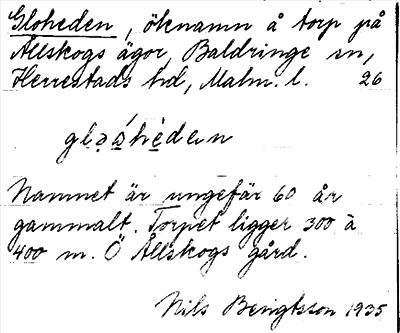 Gloheden, öknamn å torp på
Allskogs ägor, Baldringe sn,
Herrestads hd, Malm. l. 26
Namnet är ungefär 60 år
gammalt. Torpet ligger 300 à
400 m. Ö Allskogs gård.
Nils Bengtsson 1935